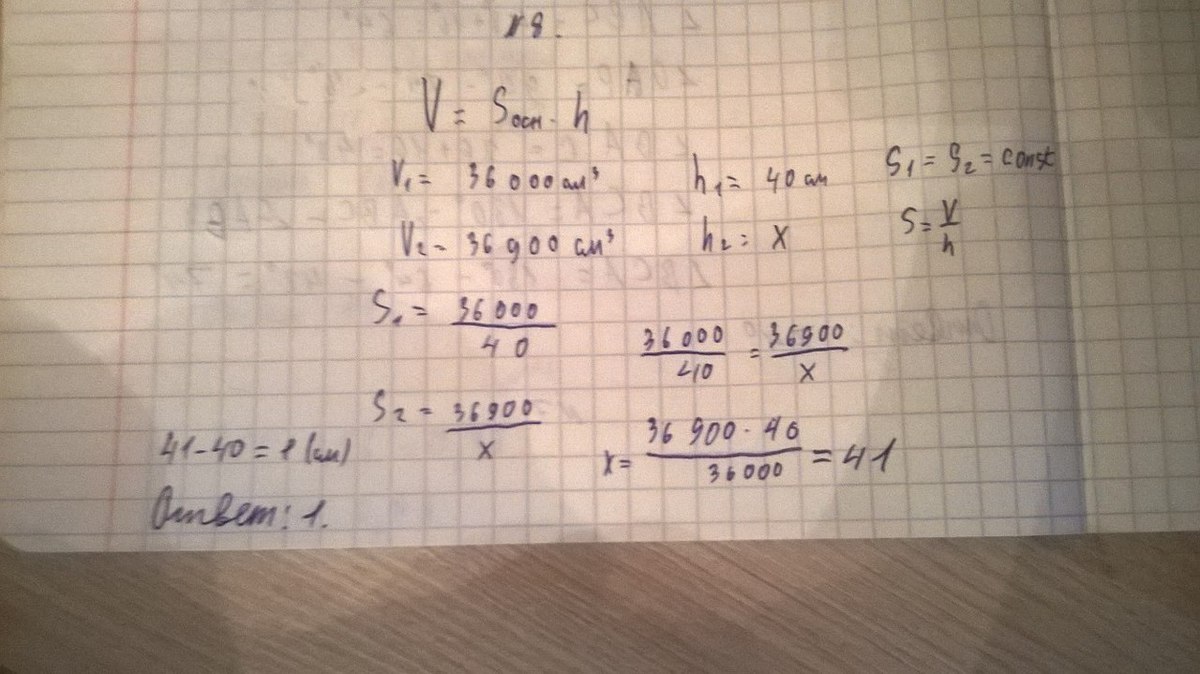 №8.
V = Sосн · h
V₁ = 36 000 см³ h₁ = 40 см S₁ = S₂ = const
V₂ = 36 900 см³ h₂ = x S = V/h
S₁ = 36 000/40
36 000/40 = 36900/x
S₂ = 36900/x
x = 36 900 · 40/36000 = 41
41 - 40 = 1 (см)
Ответ: 1.